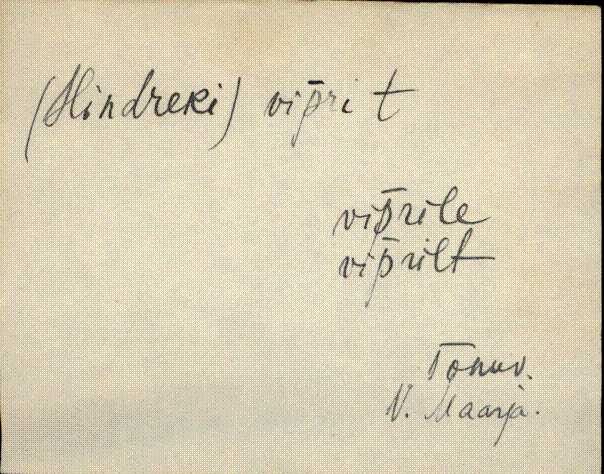 (Hindreki) vip̄ri t
vip̄rile
vip̄rilt
Tõnuv.
V. Maarja.